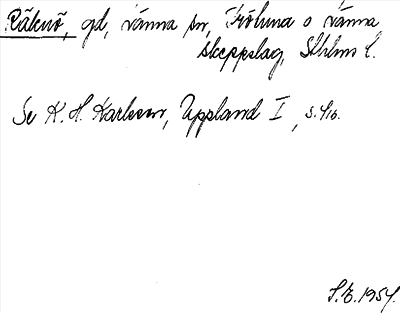 Räknö, gd, Vänna sn, Fröluna o Vänna
skeppslag, Sthlms l.
Se K. H. Karlsson, Uppland I, s. 410.
S.E. 1954.